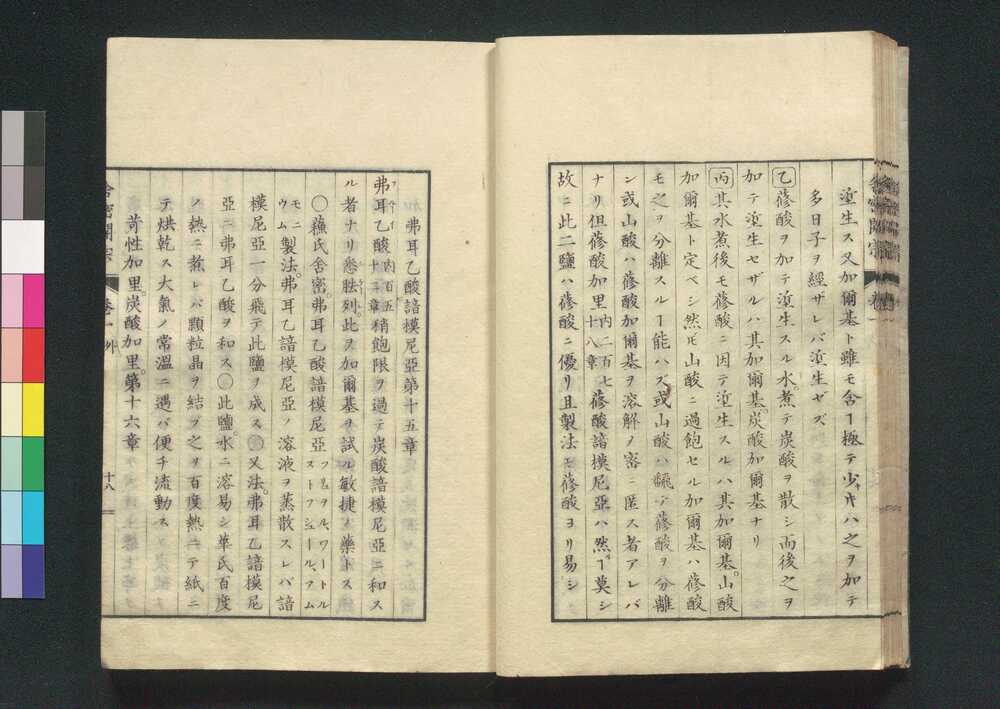 塗生ス又加爾基ト雖モ含ヿ極テ少キハ之ヲ加テ
多日子ヲ經ザレバ塗生セズ
乙蓚酸ヲ加テ塗生スル水。煮テ炭酸ヲ散シ而後之ヲ
加テ塗生セザルハ其加爾基。炭酸加爾基ナリ
丙其水煮後モ蓚酸ニ因テ塗生スルハ其加爾基。山酸
加爾基ト定ベシ然𪜈山酸ニ過飽セル加爾基ハ蓚酸
モ之ヲ分離スルヿ能ハズ或山酸ハ輙テ蓚酸ヲ分離
シ或山酸ハ蓚酸加爾基ヲ溶解ノ密ニ匿ス者アレバ
ナリ但蓚酸加里内二百七十八章蓚酸諳模尼亞ハ然ルヿ莫シ
故ニ此二鹽ハ蓚酸ニ優リ且製法モ蓚酸ヨリ易シ
舍密開宗 卷一外 十八
弗耳乙酸諳模尼亞第十五章
弗耳乙酸内百五十三章稍飽限ヲ過テ炭酸諳模尼亞ニ和ス
ル者ナリ悉胠列。此ヲ加爾基ヲ試ル敏捷ノ藥トス
〇蘓氏舍密。弗耳乙酸諳模尼亞フロヲル、ワートルストフシュール、アム
モニウム製法。弗耳乙諳模尼亞ノ溶液ヲ蒸散スレバ諳
模尼亞一分飛テ此鹽ヲ成ス〇又法。弗耳乙諳模尼
亞ニ弗耳乙酸ヲ和ス〇此鹽水ニ溶易シ華氏百度
ノ熱ニ煮レバ顆粒晶ヲ結ブ之ヲ百度熱ニテ紙ニ
テ烘乾ス大氣ノ常溫ニ遇バ便チ流動ス
苛性加里。炭酸加里。第十六章